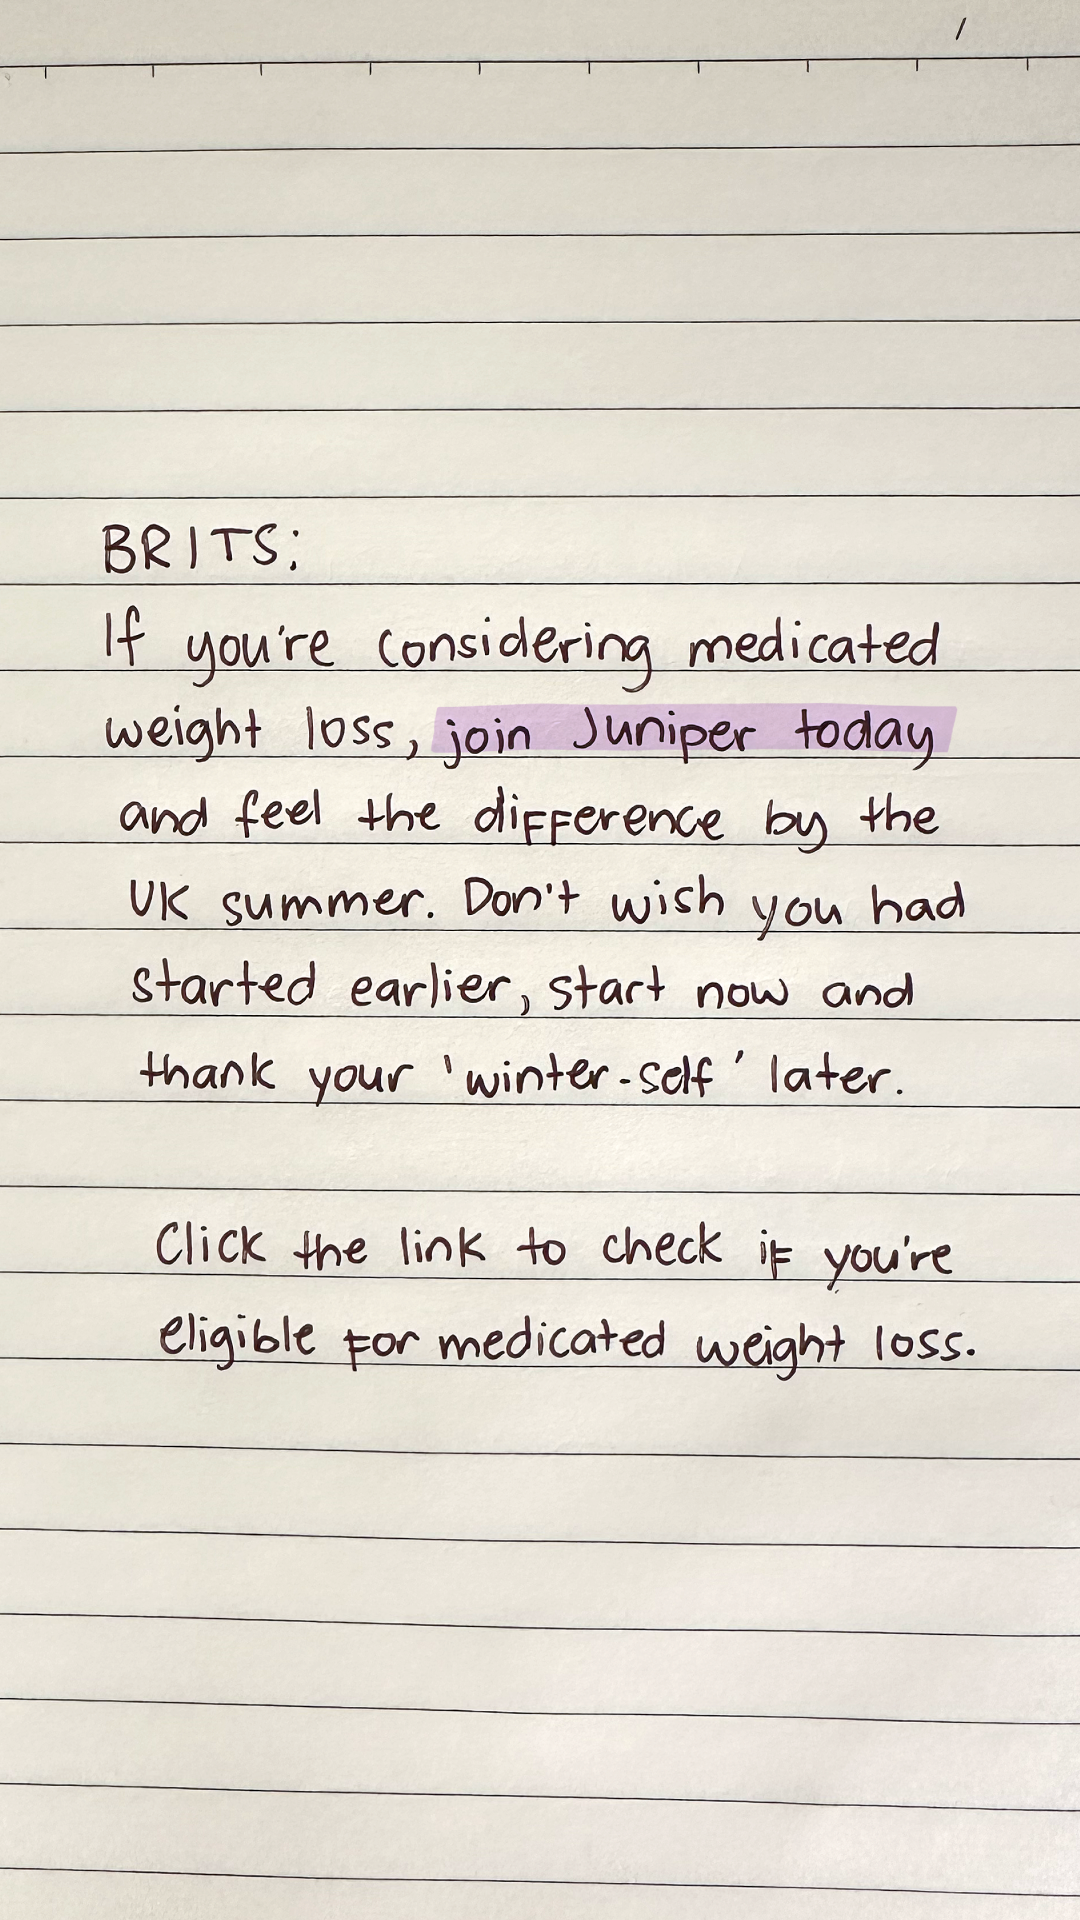 BRITS:
If you're considering medicated
weight loss, join Juniper today
and feel the difference by the
UK summer. Don't wish you had
started earlier, start now and
thank your 'winter-self' later.
Click the link to check if you're
eligible for medicated weight loss.